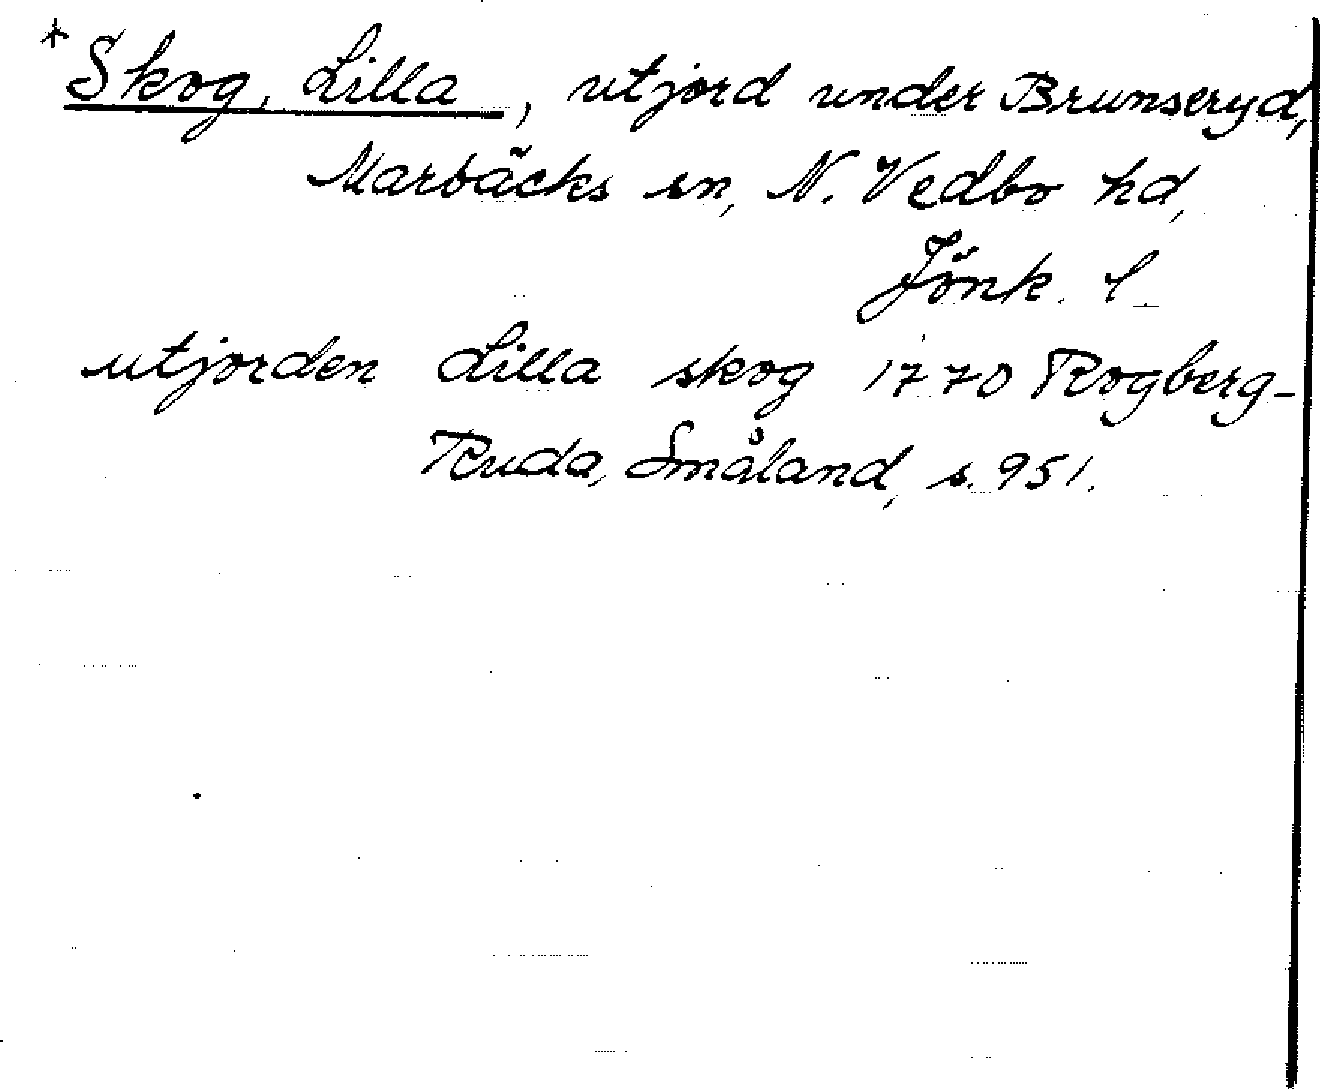 * Skog, Lilla, utjord under Brunseryd,
Marbäcks sn, N. Vedbo hd,
Jönk. l.
utjorden Lilla skog 1770 Rogberg-
Ruda, Småland, s. 951.